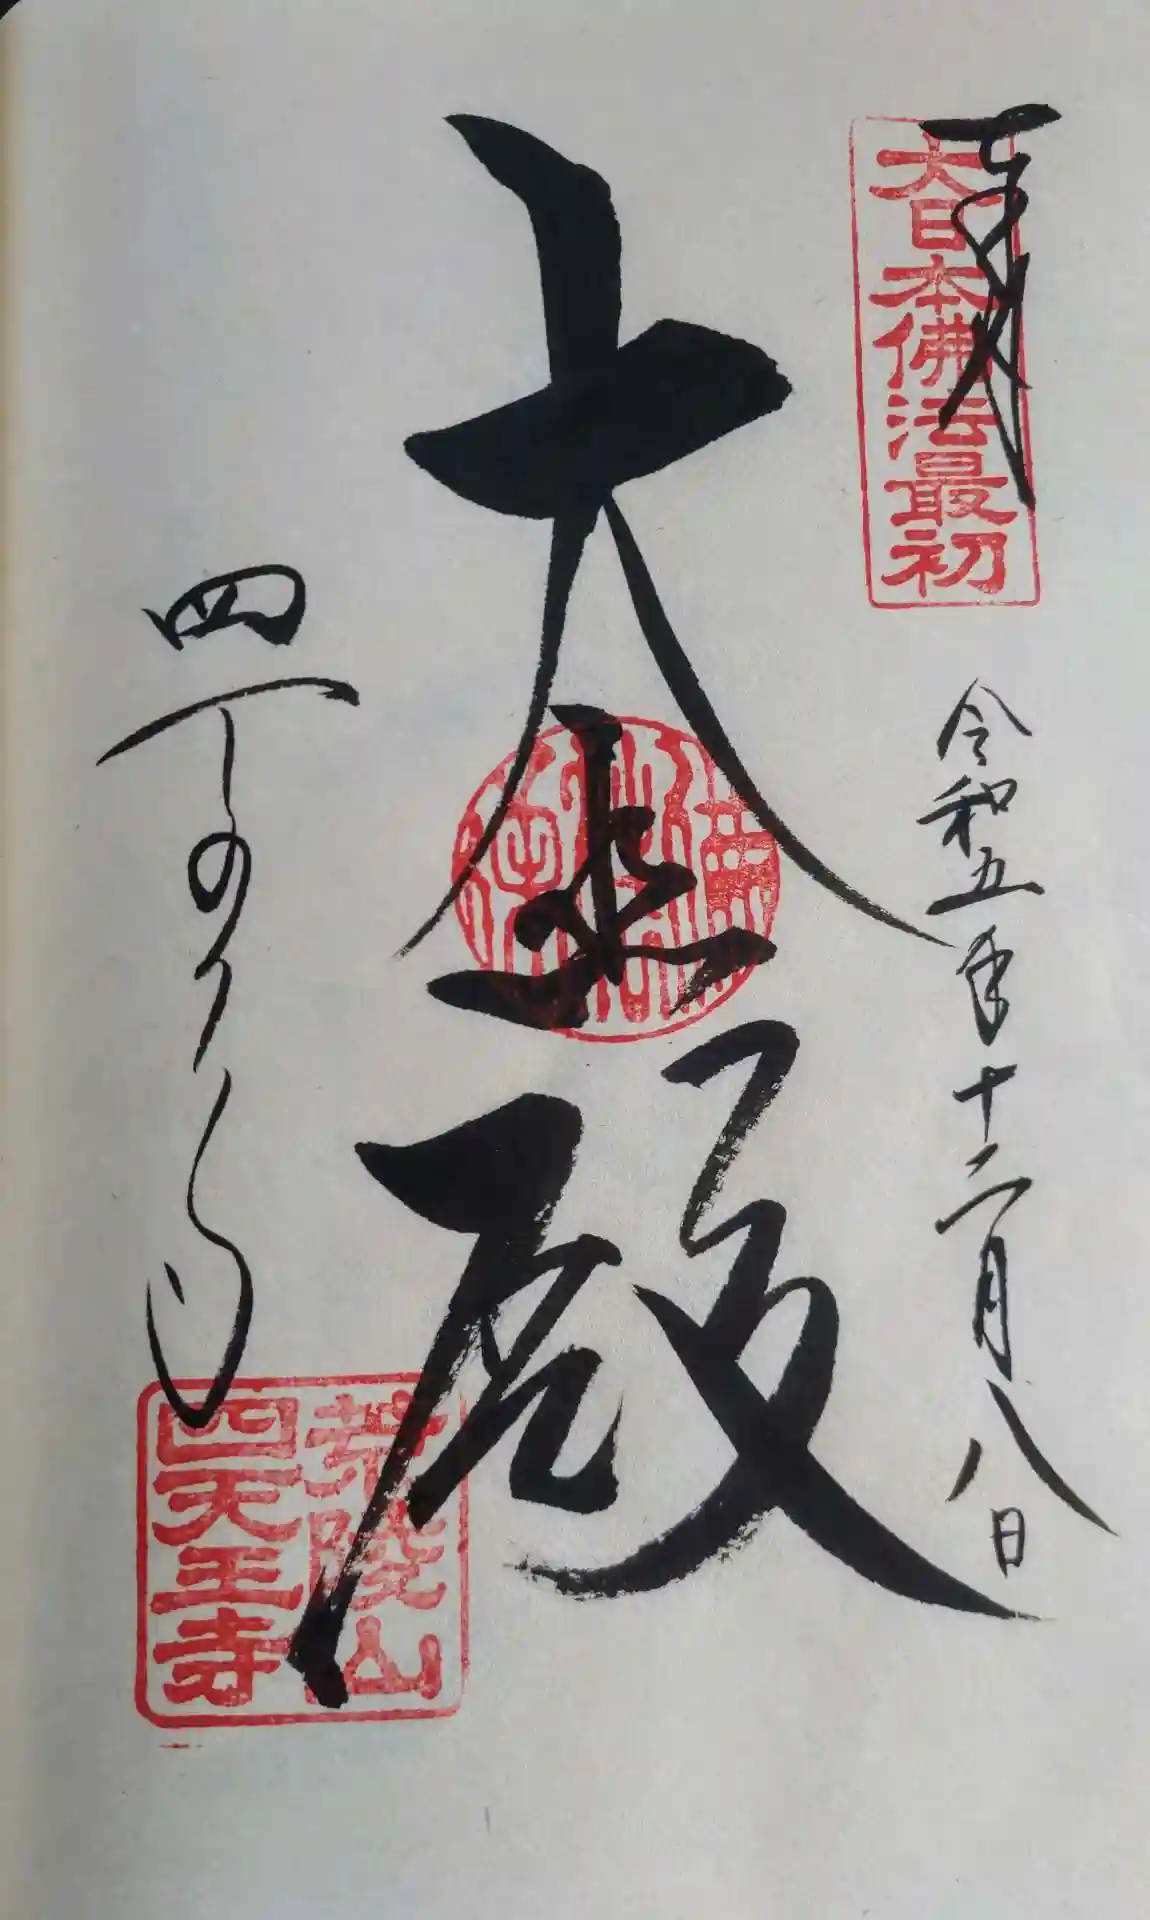 奉拝
大日本佛法最初
令和五年十二月八日
大悲殿
四天王寺
荒陵山
四天王寺